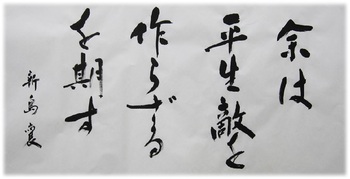 余は
平生敵を
作らざる
を期す
新島襄